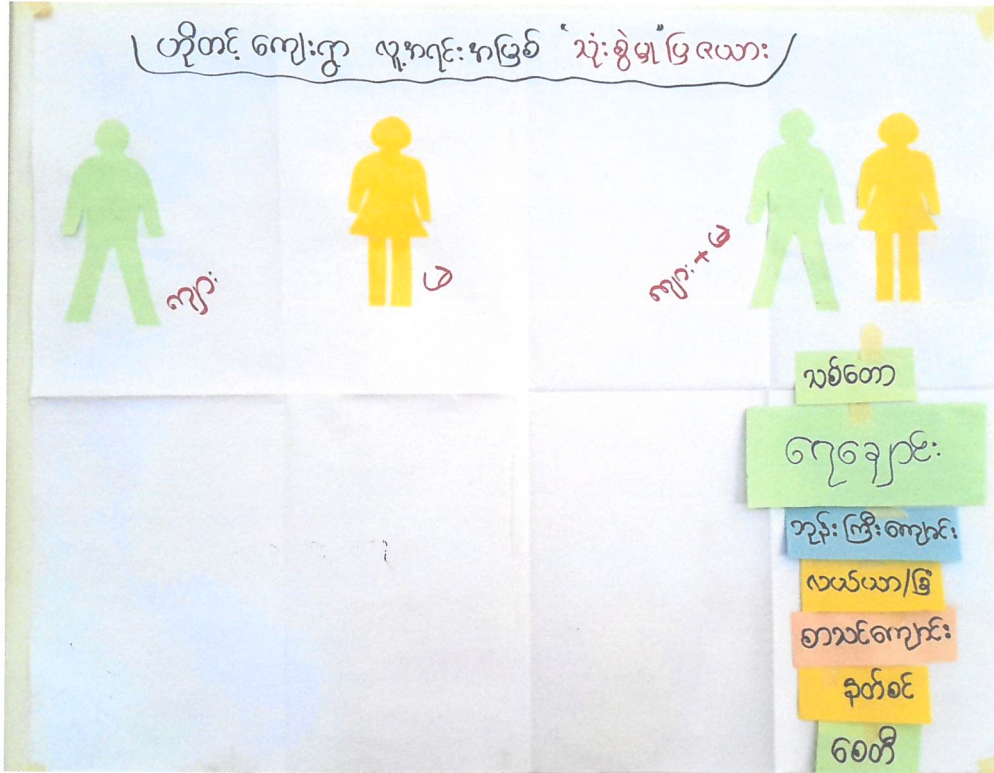 ဟိုတင့် ကျေးရွာ လူ့အရင်းအမြစ် "သုံးစွဲမှု" ပြဇယား
ကျား
မ
ကျား + မ
သစ်တော
ရေချောင်း
ဘုန်းကြီးကျောင်း
လယ်ယာ/ခြံ
စာသင်ကျောင်း
နတ်စင်
စေတီ